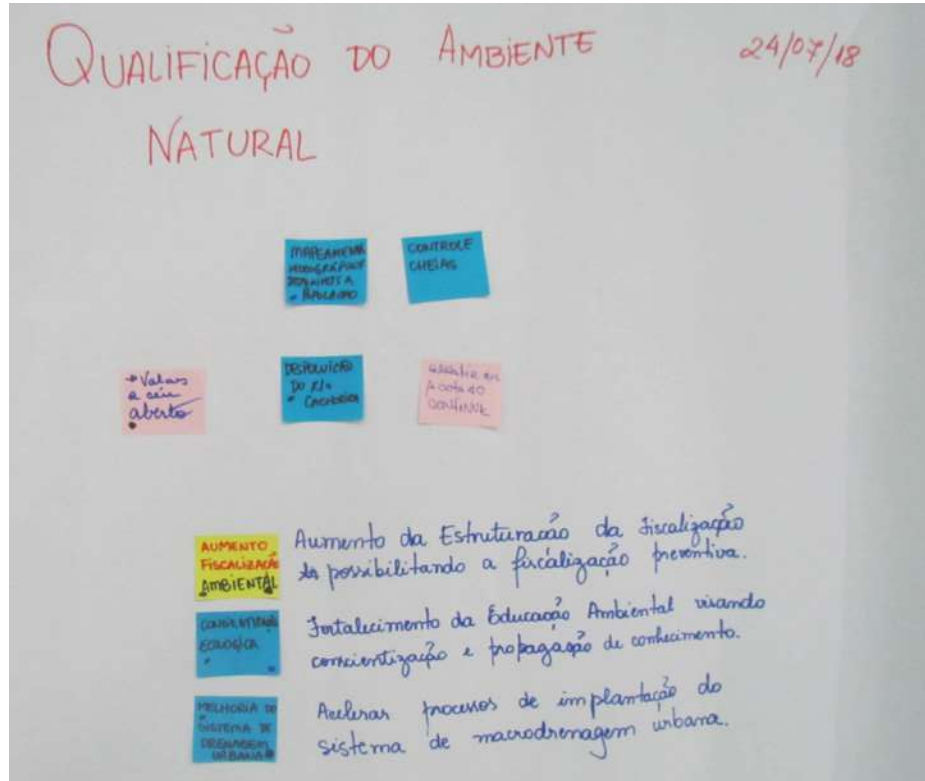 QUALIFICAÇÃO DO AMBIENTE
NATURAL
24/07/18
MAPEAMENTO
POPULAÇÃO
CONTROLE
CHEIAS
Valas
a céu
aberto
DESPOLUIÇÃO
DO RIO
CACHOEIRA
AUMENTO
FISCALIZAÇÃO
AMBIENTAL
Aumento da Estruturação da fiscalização
possibilitando a fiscalização preventiva.
ECOLOGICA
Fortalecimento da Educação Ambiental visando
conscientização e propagação de conhecimento.
MELHORIA DO
SISTEMA DE
DRENAGEM
URBANA
Acelerar processos de implantação do
sistema de macrodrenagem urbana.